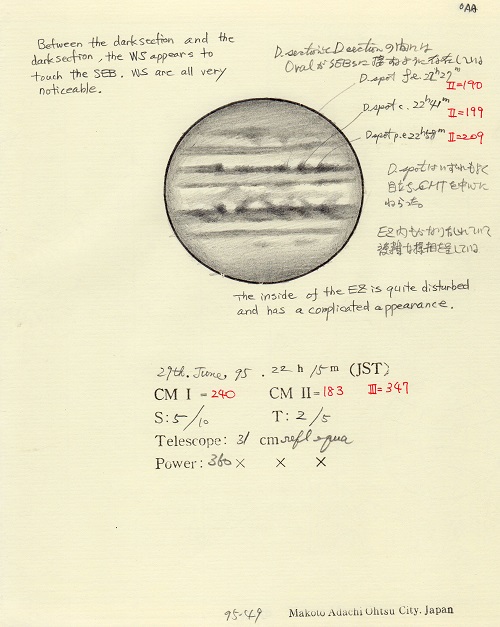 OAA
Between the dark section and the
dark section, the WS appears to
touch the SEB. WS are all very
noticeable.
D. sectionと D section の間には
Oval が SEBsに接するように存在している
D. spot f.e. 22h27m
II=190
D. spot c. 22h41m
II=199
D. spot p.e 22h58m
II=209
D. spotはいずれもよく
目立ち、CMTを中心に
ねらった。
EZ内もかなり乱れていて
複雑な様相を呈している
The inside of the EZ is quite disturbed
and has a complicated appearance.
29th. June, 95. 22h 15m (JST)
CM I = 240 CM II = 183 III = 347
S: 5/10 T: 2/5
Telescope: 31 cm refl equa
Power: 360 × × ×
95-49 Makoto Adachi Ohtsu City, Japan